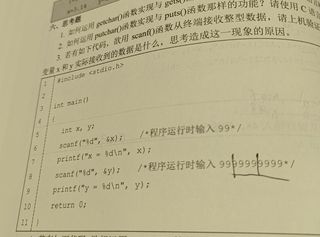 六、思考题
1. 如何运用 getchar()函数实现与 gets()
2. 如何运用 putchar()函数实现与 puts()函数那样的功能？请使用 C 语
3. 若有如下代码，欲用 scanf()函数从终端接收整型数据，请上机验证
变量 x 和 y 实际接收到的数据是什么，思考造成这一现象的原因。
1 #include <stdio.h>
2
3 int main()
4 {
5 int x, y;
6 scanf("%d", &x); /*程序运行时输入 99*/
7 printf("x = %d\n", x);
8 scanf("%d", &y); /*程序运行时输入 9999999999*/
9 printf("y = %d\n", y);
10 return 0;
11 }